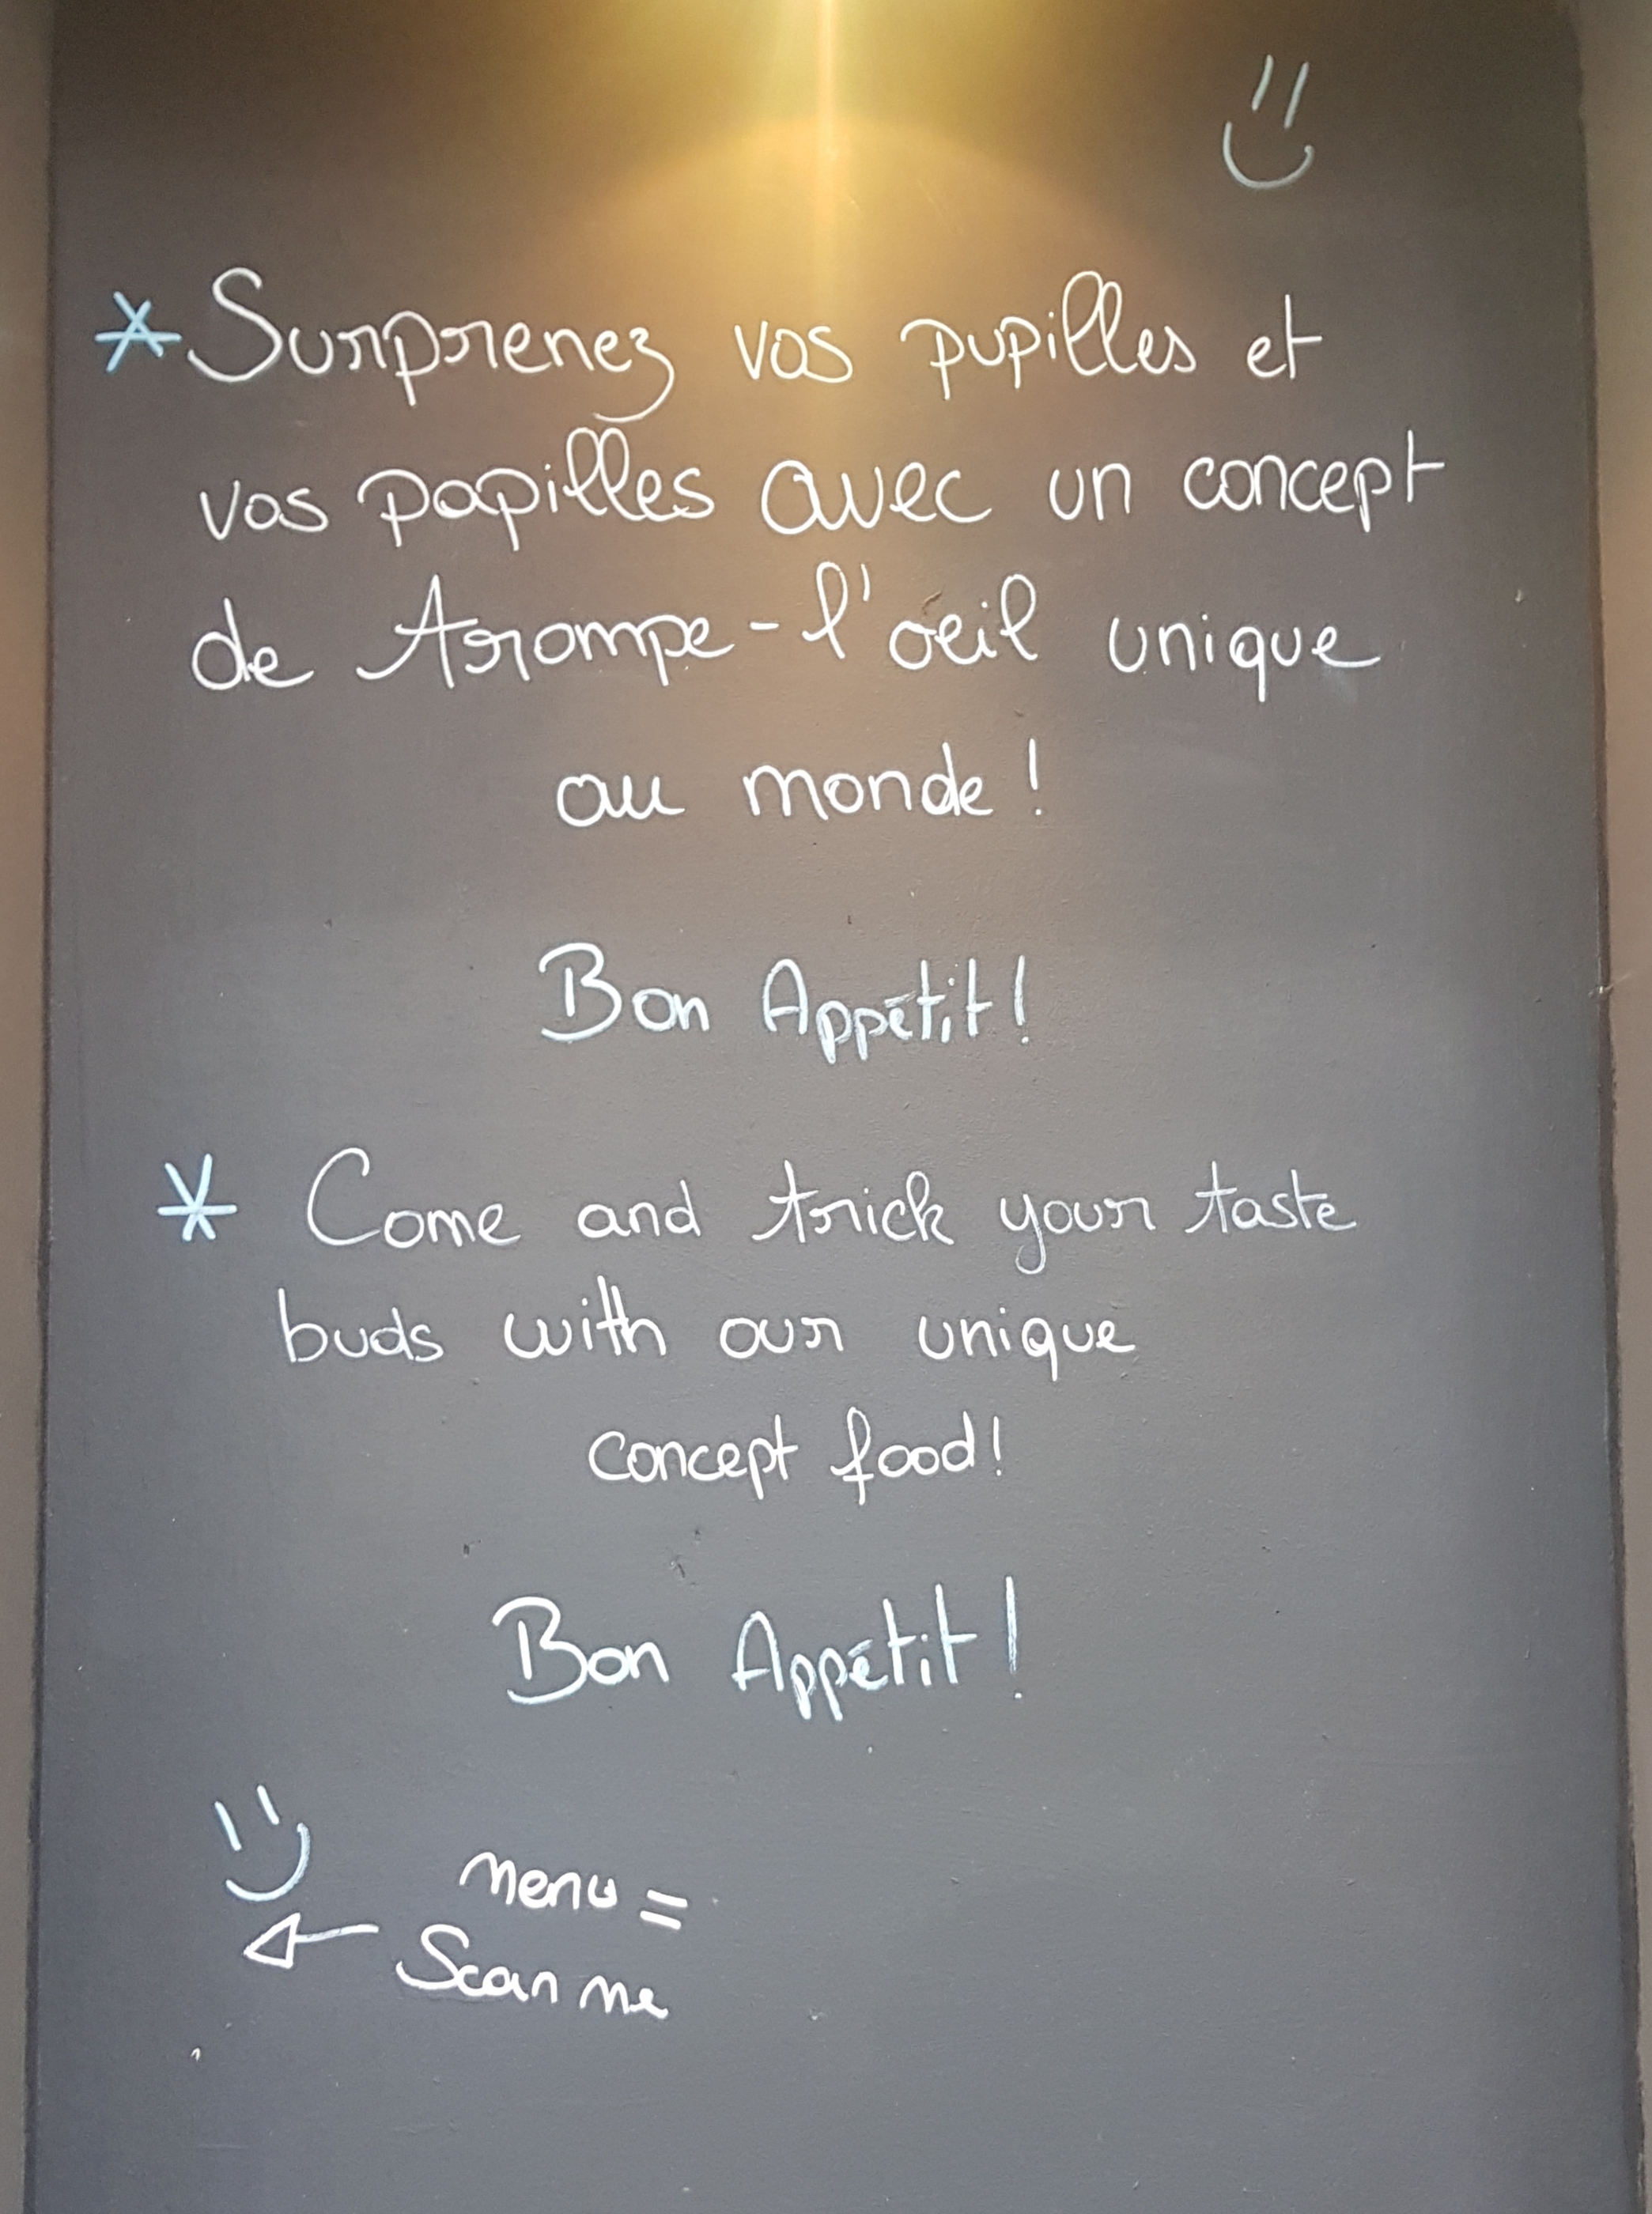 * Surprenez vos pupilles et
vos papilles avec un concept
de trompe-l'oeil unique
au monde !
Bon Appétit !
* Come and trick your taste
buds with our unique
concept food !
Bon Appétit !
menu =
Scan me